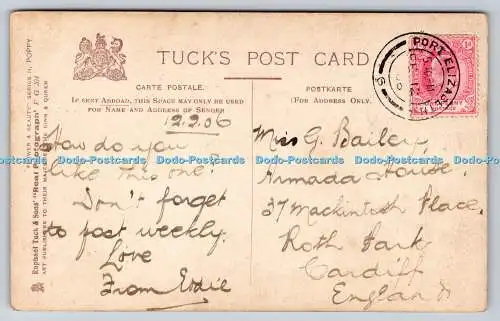 TUCK'S POST CARD
CARTE POSTALE.
IF SENT ABROAD, THIS SPACE MAY ONLY BE USED
FOR NAME AND ADDRESS OF SENDER
POSTKARTE
(FOR ADDRESS ONLY.
12.2.06
How do you
like this one?
Don't forget
to post weekly.
Love
From Eddie
Miss G. Bailey,
Armada House,
37 Mackintosh Place,
Roth Park
Cardiff
England
PORT ELIZABETH
Raphael Tuck & Sons' "Real Photograph"
ART PUBLISHERS TO THEIR MAJESTIES THE KING & QUEEN
SERIES II, POPPY
Dodo-Postcards Dodo-Postcards Dodo-Postcards